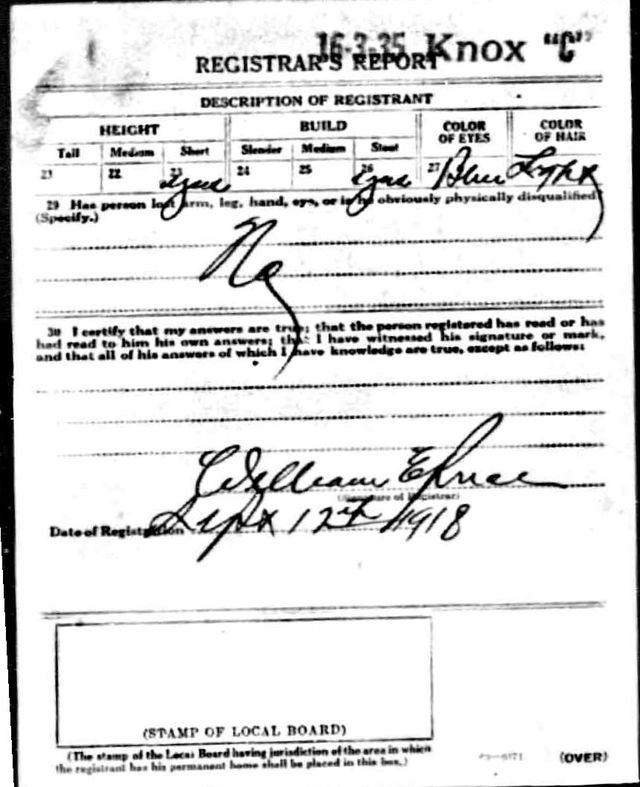 16-3-35 Knox "C"
REGISTRAR'S REPORT
DESCRIPTION OF REGISTRANT
HEIGHT BUILD COLOR OF EYES COLOR OF HAIR
Tall Medium Short Slender Medium Stout
21 22 23 yes 24 25 26 yes 27 Blue
29 Has person lost arm, leg, hand, eye, or is he obviously physically disqualified?
(Specify.)
No
30 I certify that my answers are true; that the person registered has read or has
had read to him his own answers; that I have witnessed his signature or mark,
and that all of his answers of which I have knowledge are true, except as follows:
William E Price
(Signature of Registrar)
Date of Registration Sept 12th 1918
(STAMP OF LOCAL BOARD)
(The stamp of the Local Board having jurisdiction of the area in which
the registrant has his permanent home shall be placed in this box.)
(OVER)